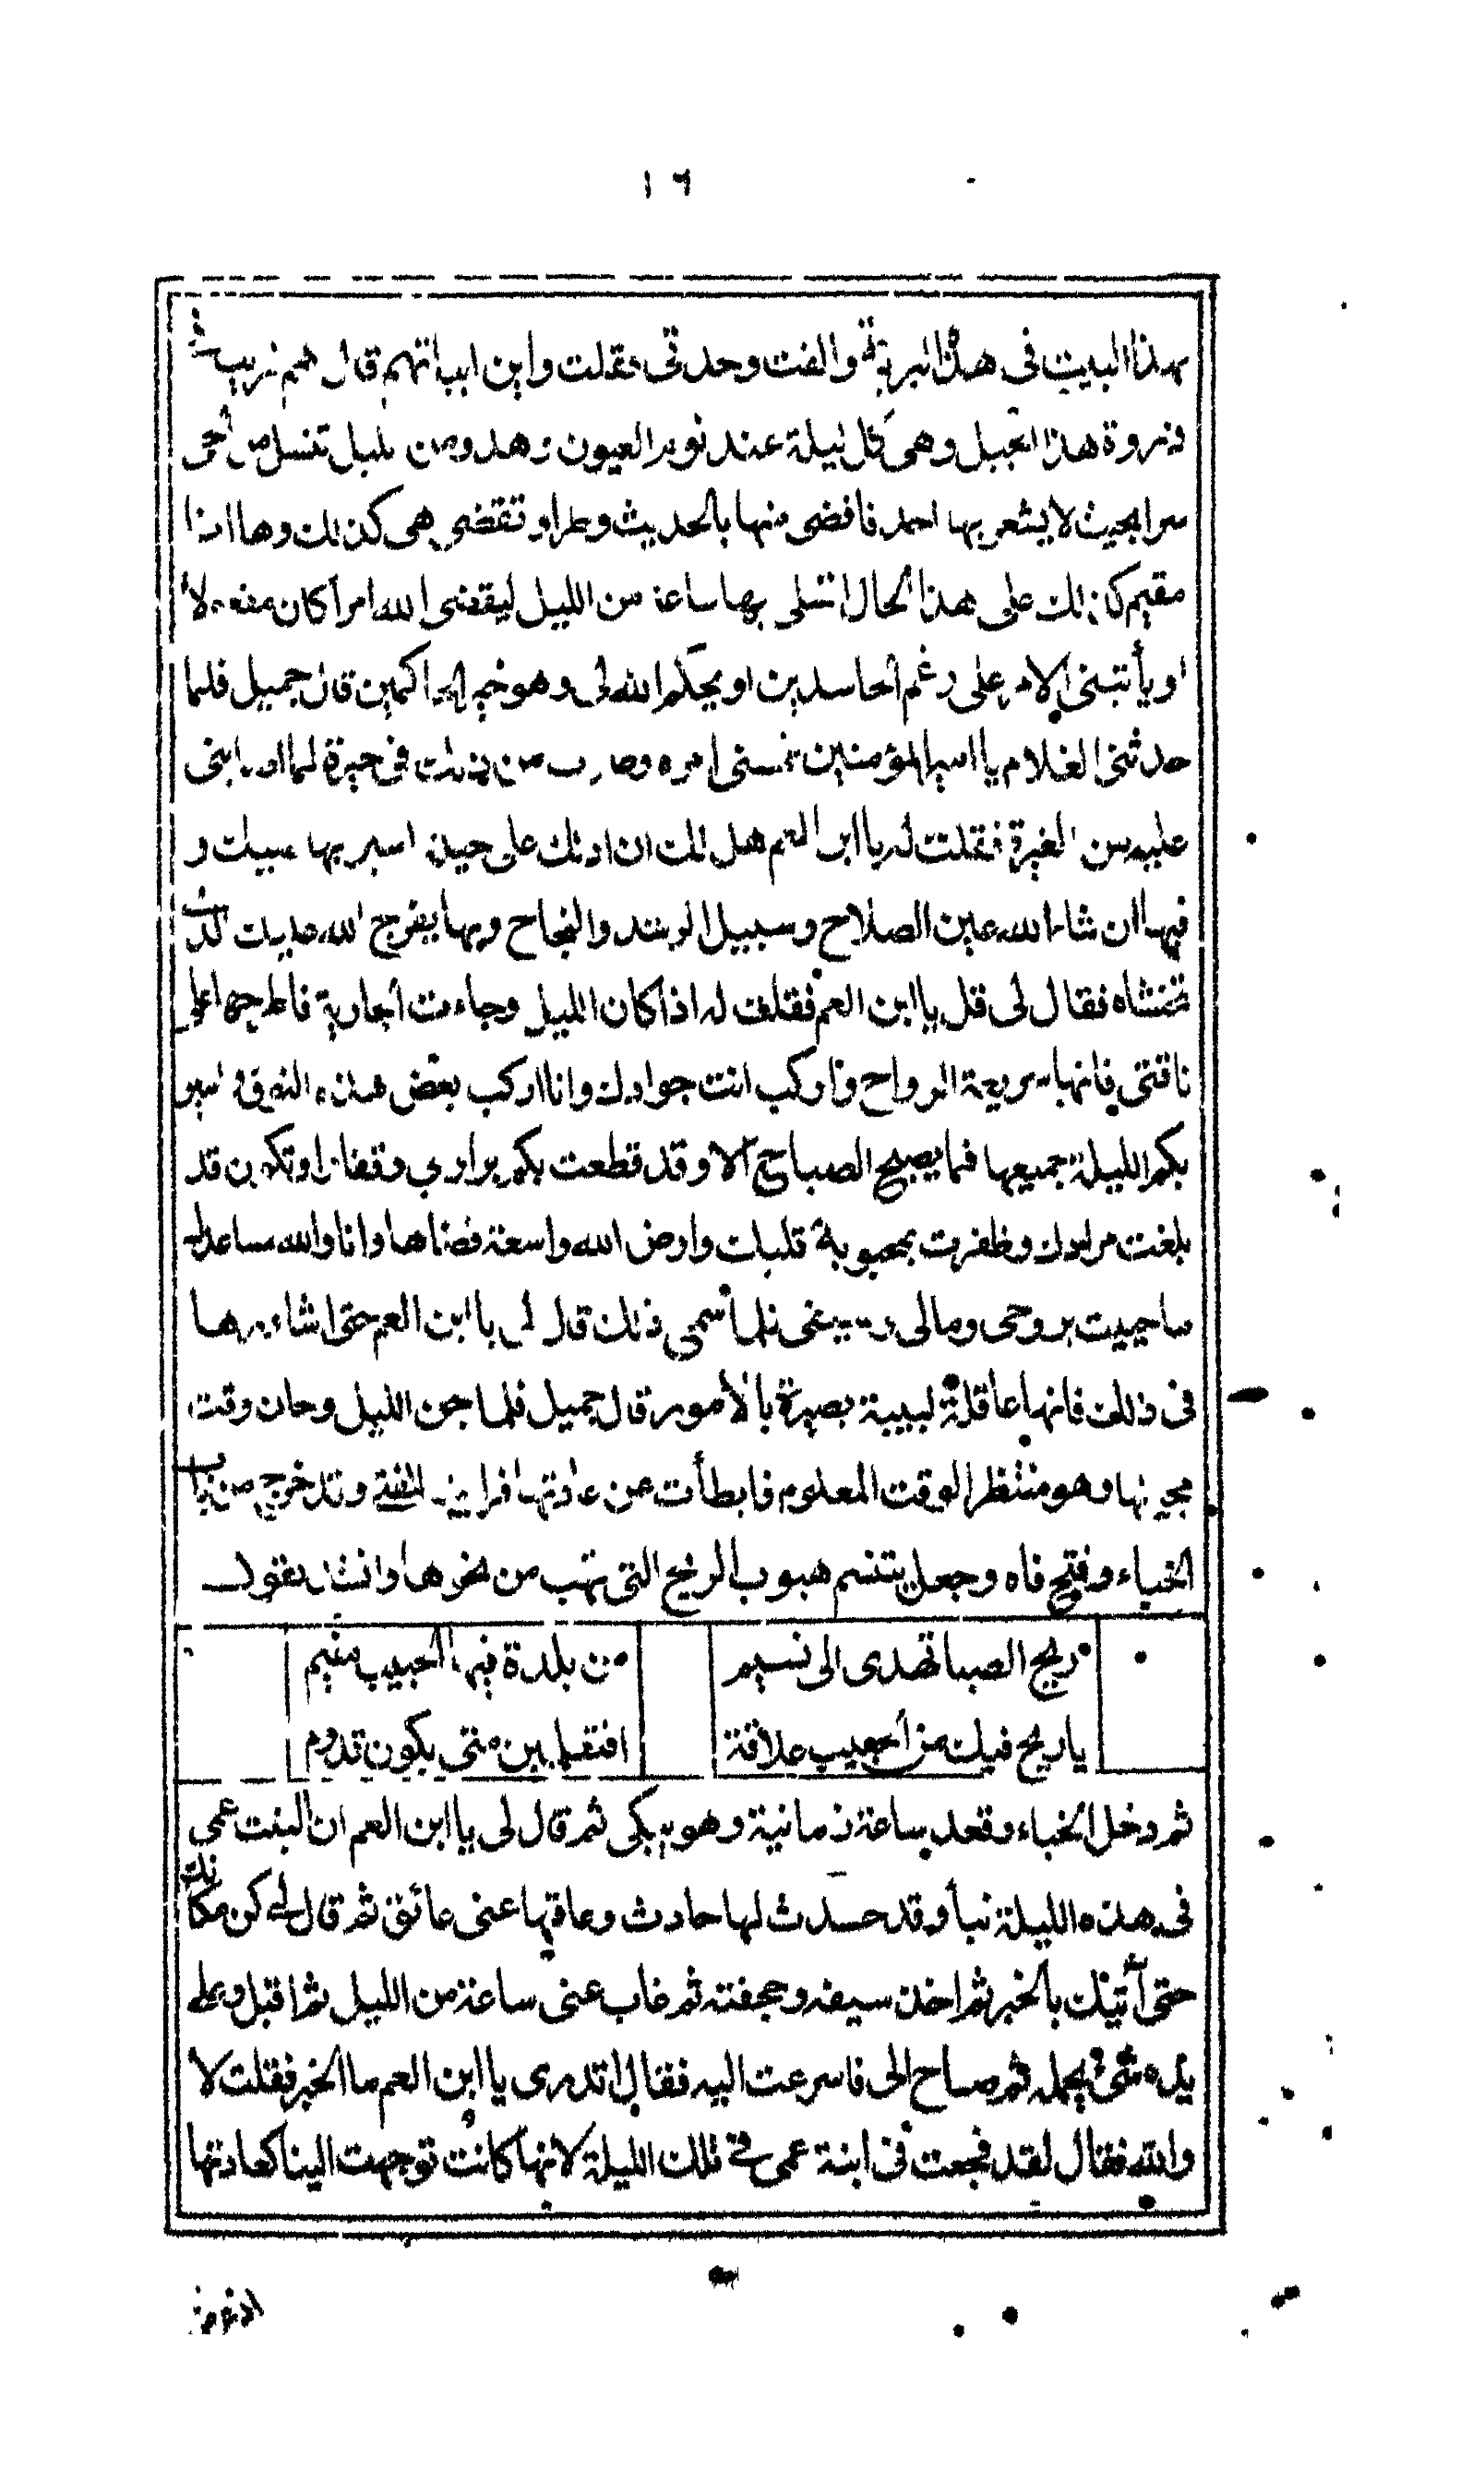 ١٦
بهذا البيت فى هذه البرية والفت وحدتى فقلت واين ابياتهم قال هم قريب فى
ذروة هذا الجبل وهى كل ليلة عند نوم العيون وهدو من الليل تنسل من الحى
سرا بحيث لا يشعر بها احد فاقضى منها بالحديث وطرا وتقضى هى كذلك وها انا
مقيم كذلك على هذا الحال اتسلى بها ساعة من الليل ليقضى الله امرا كان مفعولا
او يأتينى الامر على رغم الحاسدين او يحكم الله لى وهو خير الحاكمين قال جميل فلما
حدثنى الغلام يا امير المؤمنين غمنى امره وصرت من ذلك فى حيرة لما اصابنى
عليه من الغيرة فقلت له يا ابن العم هل لك ان ادلك على حيلة اشير بها عليك و
فيها ان شاء الله عين الصلاح وسبيل الرشد والنجاح وبها يفرج الله عليك الذى
تخشاه فقال لى قل يا ابن العم فقلت له اذا كان الليل وجاءت الجارية فاطرحها على
ناقتى فانها سريعة الرواح واركب انت جوادك وانا اركب بعض هذه النوق واسير
بكم الليلة جميعها فما يصبح الصباح الا وقد قطعت بكم برارى وقفارا وتكون قد
بلغت مرادك وظفرت بمحبوبة قلبك وارض الله واسعة فضاها وانا والله مساعدك
ما حييت بروحى ومالى وسيفى فلما سمع ذلك قال لى يا ابن العم حتى اشاورها
فى ذلك فانها عاقلة لبيبة بصيرة بالامور قال جميل فلما جن الليل وحان وقت
مجيئها وهو منتظر الوقت المعلوم فابطأت عن عادتها فرايت الفتى وقد خرج من باب
الخباء وفتح فاه وجعل يتنسم هبوب الريح التى تهب من نحوها وانشد يقول
ريح الصبا تهدى الى نسيم من بلدة فيها الحبيب مقيم
يا ريح فيك من الحبيب علاقة افتعلمين متى يكون قدوم
ثم دخل الخباء وقعد ساعة زمانية وهو يبكى ثم قال لى يا ابن العم ان لبنت عمى
فى هذه الليلة نبأ وقد حدث لها حادث وعاقها عنى عائق ثم قال لى كن مكانك
حتى آتيك بالخبر ثم اخذ سيفه وحجفته ثم غاب عنى ساعة من الليل ثم اقبل وعلى
يده شئ يحمله ثم صاح الى فاسرعت اليه فقال اتدرى يا ابن العم ما الخبر فقلت لا
والله فقال لقد فجعت فى ابنة عمى فى تلك الليلة لانها كانت توجهت الينا كعادتها